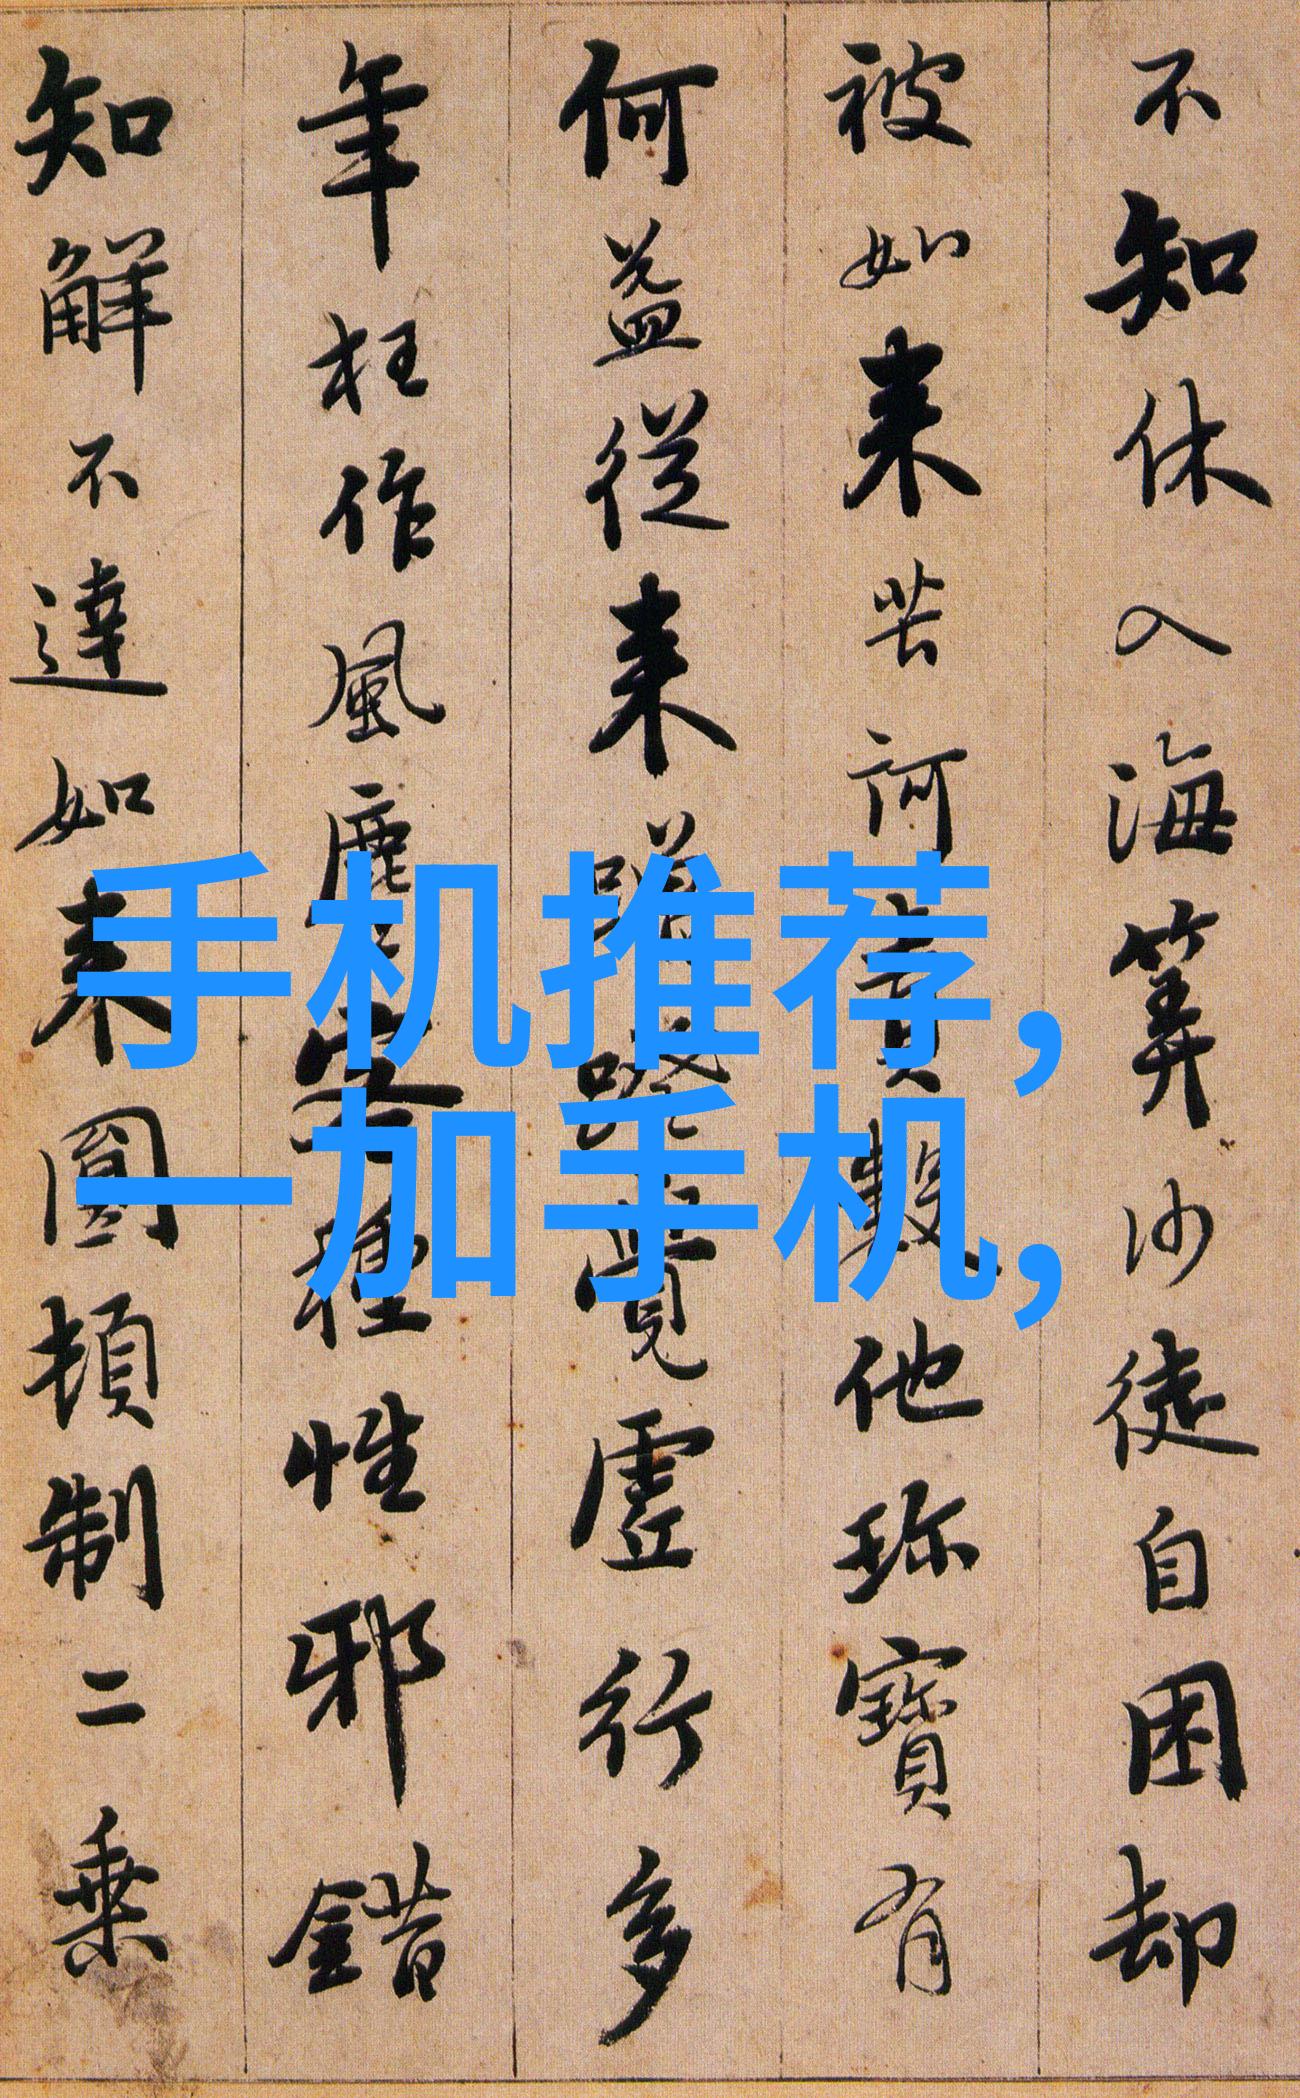 不知休入海算沙徒自困却
被如来苦訶責數他珎寶有
何益從来蹭蹬覺虛行多
年枉作風塵客種性邪錯
知解不達如来圓頓制二乗
手机推荐,
一加手机,